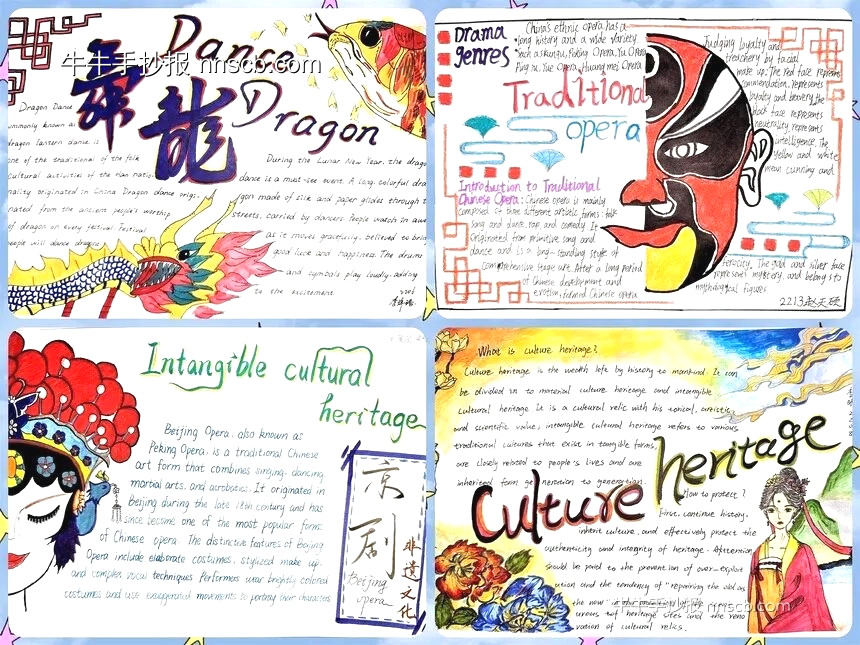 牛牛手抄报 nnscb.com
Dance
Dragon
舞
龙
Dragon Dance
ommonly known as
dragon lantern dance, is
one of the traditional of the folk
cultural activities of the Han natio-
nality originated in China Dragon dance origi-
nated from the ancient people's worship
of dragon on every festival Festival
people will dance dragons
During the Lunar New Year, the drago
dance is a must-see event. A long, colorful dra
gon made of silk and paper glides through t
streets, carried by dancers. People watch in awe
as it moves gracefully, believed to brin
good luck and happiness. The drums
and cymbals play loudly, adding
to the excitement.
Drama
genres
China's ethnic opera has a
long history and a wide variety
Such as kunqu, Peking Opera, Yu Opera
Ping ju, Yue Opera, Huangmei Opera
Traditional
opera
Introduction to Traditional
Chinese Opera: Chinese opera is mainly
composed of three different artistic forms: folk
song and dance, rap and comedy. It
Originated from primitive song and
dance and is a long-standing style of
comprehensive stage art. After a long period
of Chinese development and
evolution, formed Chinese opera
Judging loyalty and
treachery by facial
make up: The red face represents
commendation, represents
loyalty and bravery, the
black face represents
neutrality, represents
intelligence, The
yellow and white
mean cunning and
ferocity. The gold and silver face
represents mystery, and belongs to
mythological figures
2213
Intangible cultural
heritage
Beijing Opera, also known as
Peking Opera, is a traditional Chinese
art form that combines singing, dancing,
martial arts, and acrobatics. It originated in
Beijing during the late 18th century and has
since become one of the most popular forms
of Chinese opera. The distinctive features of Beijing
Opera include elaborate costumes, stylized make up,
and complex vocal techniques Performers wear brightly colored
costumes and use exaggerated movements to portray their characters
京
剧
Beijing
opera
非遗文化
What is culture heritage?
Culture heritage is the wealth left by history to mankind. It can
be divided in to material culture heritage and intangible
cultural heritage It is a cultural relic with his torical, artistic,
and scientific value, intangible cultural heritage refers to various
traditional cultures that exist in tangible forms,
are closely related to people's lives and are
inherited from generation to generation.
Culture heritage
How to protect?
First, continue history,
inherit culture, and effectively protect the
authenticity and integrity of heritage. Attention
should be paid to the prevention of over-exploit
ation and the tendency of "repairing the old as
the new"
urous of heritage sites and the reno
vation of cultural relics.
牛牛手抄报 nnscb.com